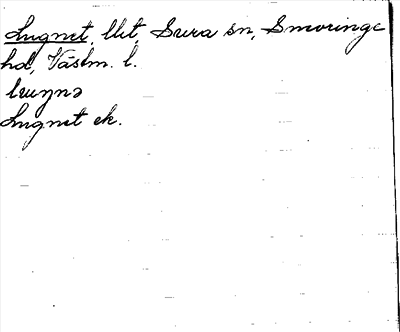 Lugnet, llit, Sura sn, Snevringe
hd, Västm. l.
lɯŋnə
Lugnet ek.